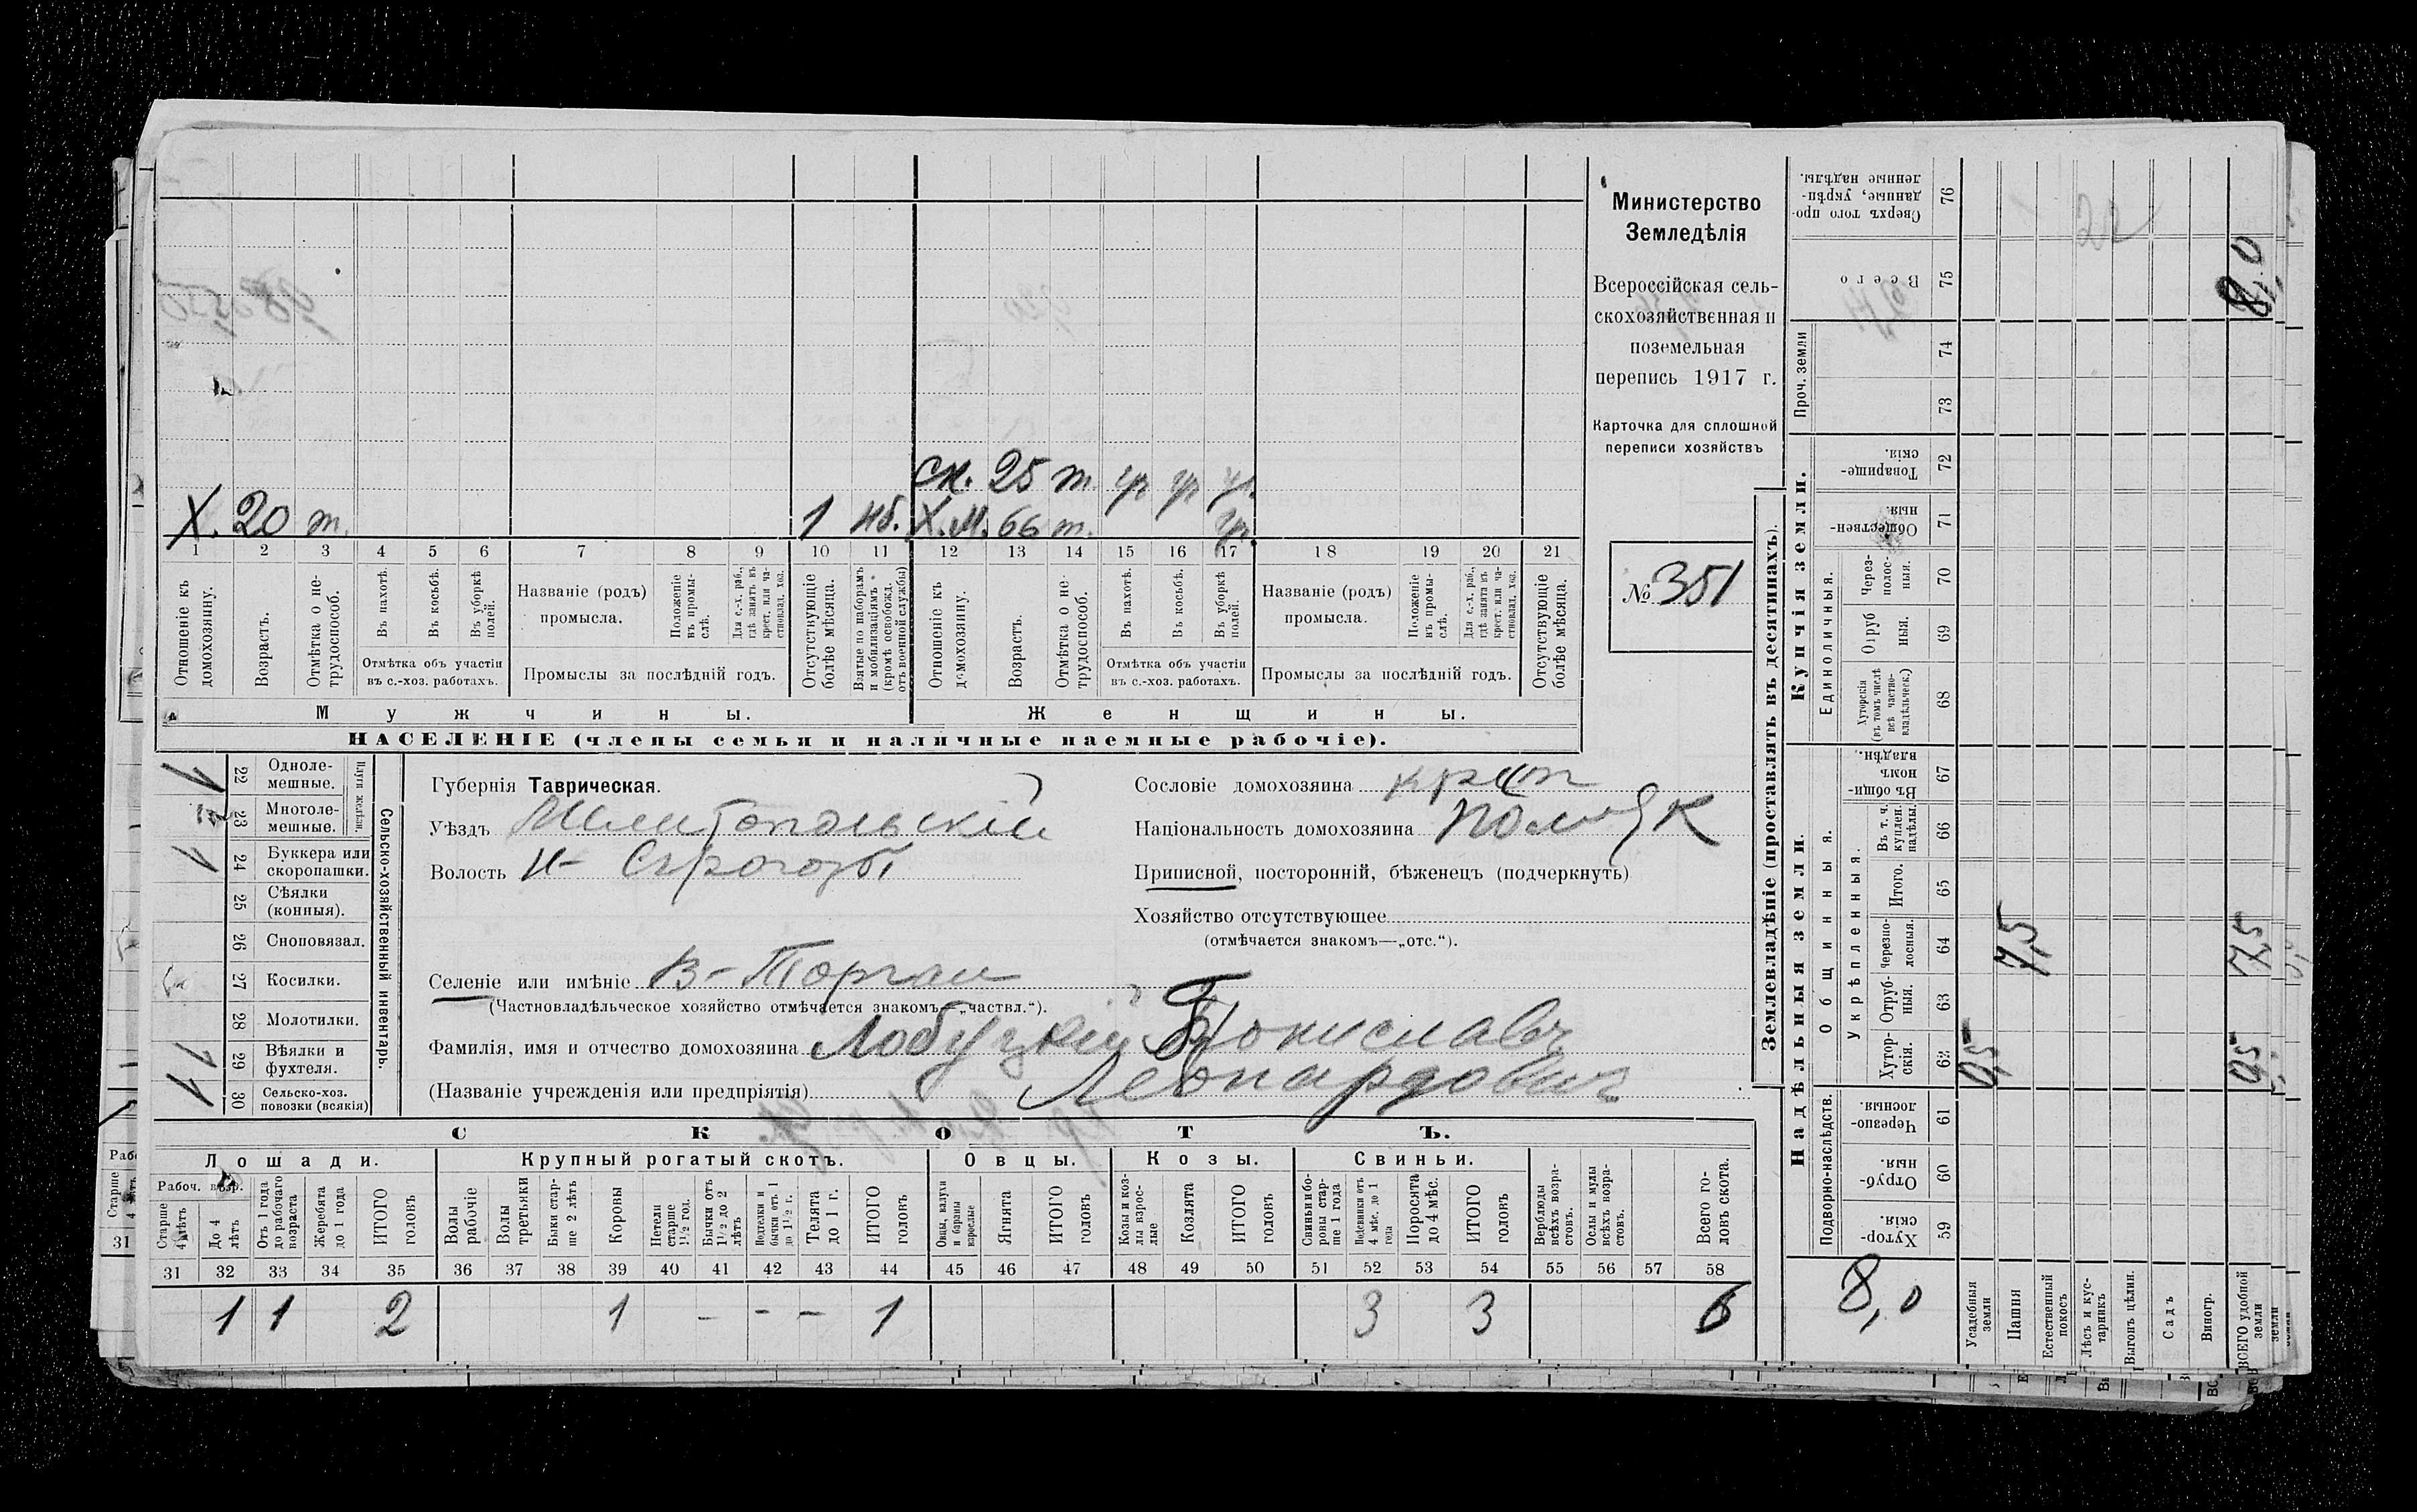 Министерство
Земледѣлія
Всероссійская сель-
скохозяйственная и
поземельная
перепись 1917 г.
Карточка для сплошной
переписи хозяйствъ
№ 351
сн. 25 т. чр чр чр.
Х. 20 т. 1 нб. Х.М. 66 т. чр.
1 2 3 4 5 6 7 8 9 10 11 12 13 14 15 16 17 18 19 20 21
Отношеніе къ домохозяину.
Возрастъ.
Отмѣтка о не-трудоспособ.
Въ пахотѣ.
Въ косьбѣ.
Въ уборкѣ полей.
Отмѣтка объ участіи
въ с.-хоз. работахъ.
Названіе (родъ)
промысла.
Положеніе въ промы-слѣ.
Для с.-х. раб., гдѣ занятъ въ крест. или ча-стновлад. хоз.
Промыслы за послѣдній годъ.
Отсутствующіе болѣе мѣсяца.
Взятые по наборамъ и мобилизаціямъ (кромѣ освобожд. отъ военной службы)
Отношеніе къ домохозяину.
Возрастъ.
Отмѣтка о не-трудоспособ.
Въ пахотѣ.
Въ косьбѣ.
Въ уборкѣ полей.
Отмѣтка объ участіи
въ с.-хоз. работахъ.
Названіе (родъ)
промысла.
Положеніе въ промы-слѣ.
Для с.-х. раб., гдѣ занята въ крест. или ча-стновлад. хоз.
Промыслы за послѣдній годъ.
Отсутствующіе болѣе мѣсяца.
Мужчины. Женщины.
НАСЕЛЕНІЕ (члены семьи и наличные наемные рабочіе).
Сельско-хозяйственный инвентарь.
Плуги желѣзн.
22 Одноле-мешные. 1
23 Многоле-мешные.
24 Буккера или скоропашки. 1
25 Сѣялки (конныя).
26 Сноповязал.
27 Косилки.
28 Молотилки.
29 Вѣялки и фухтеля. 1
30 Сельско-хоз. повозки (всякія) 1
Губернія Таврическая.
Уѣздъ Мелитопольскій
Волость Н- Сѣрогозы
Селеніе или имѣніе В-Торгаи
(Частновладѣльческое хозяйство отмѣчается знакомъ—„частвл.“).
Фамилія, имя и отчество домохозяина Лобуцкій Брониславъ
(Названіе учрежденія или предпріятія) Леонардович
Сословіе домохозяина крест
Національность домохозяина Поляк
Приписной, посторонній, бѣженецъ (подчеркнуть)
Хозяйство отсутствующее
(отмѣчается знакомъ—„отс.“).
СКОТЪ.
Лошади. Крупный рогатый скотъ. Овцы. Козы. Свиньи.
Рабоч. возр.
Старше 4 лѣтъ
До 4 лѣтъ
Отъ 1 года до рабочаго возраста
Жеребята до 1 года
ИТОГО головъ
Волы рабочіе
Волы третьяки
Быки стар-ше 2 лѣтъ
Коровы
Нетели старше 1½ год.
Бычки отъ 1½ до 2 лѣтъ
Подтелки и бычки отъ 1 до 1½ г.
Телята до 1 г.
ИТОГО головъ
Овцы, валухи и бараны взрослые
Ягнята
ИТОГО головъ
Козы и коз-лы взрос-лые
Козлята
ИТОГО головъ
Свиньи и бо-ровы стар-ше 1 года
Подсвинки отъ 4 мѣс. до 1 года
Поросята до 4 мѣс.
ИТОГО головъ
Верблюды всѣхъ возра-стовъ.
Ослы и мулы всѣхъ возра-стовъ.
Всего го-ловъ скота.
31 32 33 34 35 36 37 38 39 40 41 42 43 44 45 46 47 48 49 50 51 52 53 54 55 56 57 58
1 1 2 1 - - - 1 3 3 6
Землевладѣніе (проставлять въ десятинахъ).
Надѣльныя земли. Купчія земли. Проч. земли
Подворно-наслѣдств. Общинныя. Единоличныя.
Укрѣпленныя.
59 Хутор-скія.
60 Отруб-ныя.
61 Черезпо-лосныя.
62 Хутор-скія.
63 Отруб-ныя.
64 Черезпо-лосныя.
65 Итого.
66 Въ т. ч. куплен. надѣлы.
67 Въ общи-номъ владѣн.
68 Хуторскія (въ томъ числѣ всѣ частно-владѣльческ.)
69 Отруб ныя.
70 Через-полос-ныя.
71 Обществен-ныя.
72 Товарище-скія.
73
74
75 Всего
76 Сверхъ того про-данные, укрѣп-ленные надѣлы.
8,0
Усадебныя земли 0,5
Пашня 7,5
Естественный покосъ
Лѣсъ и кус-тарникъ
Выгонъ цѣлин.
Садъ
Виногр.
ВСЕГО удобной земли 0,5 7,5 8,0